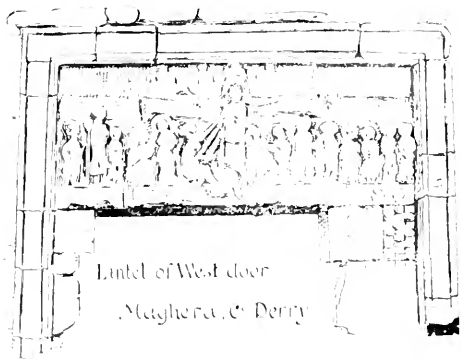 Lintel of West door
Maghera, Co Derry